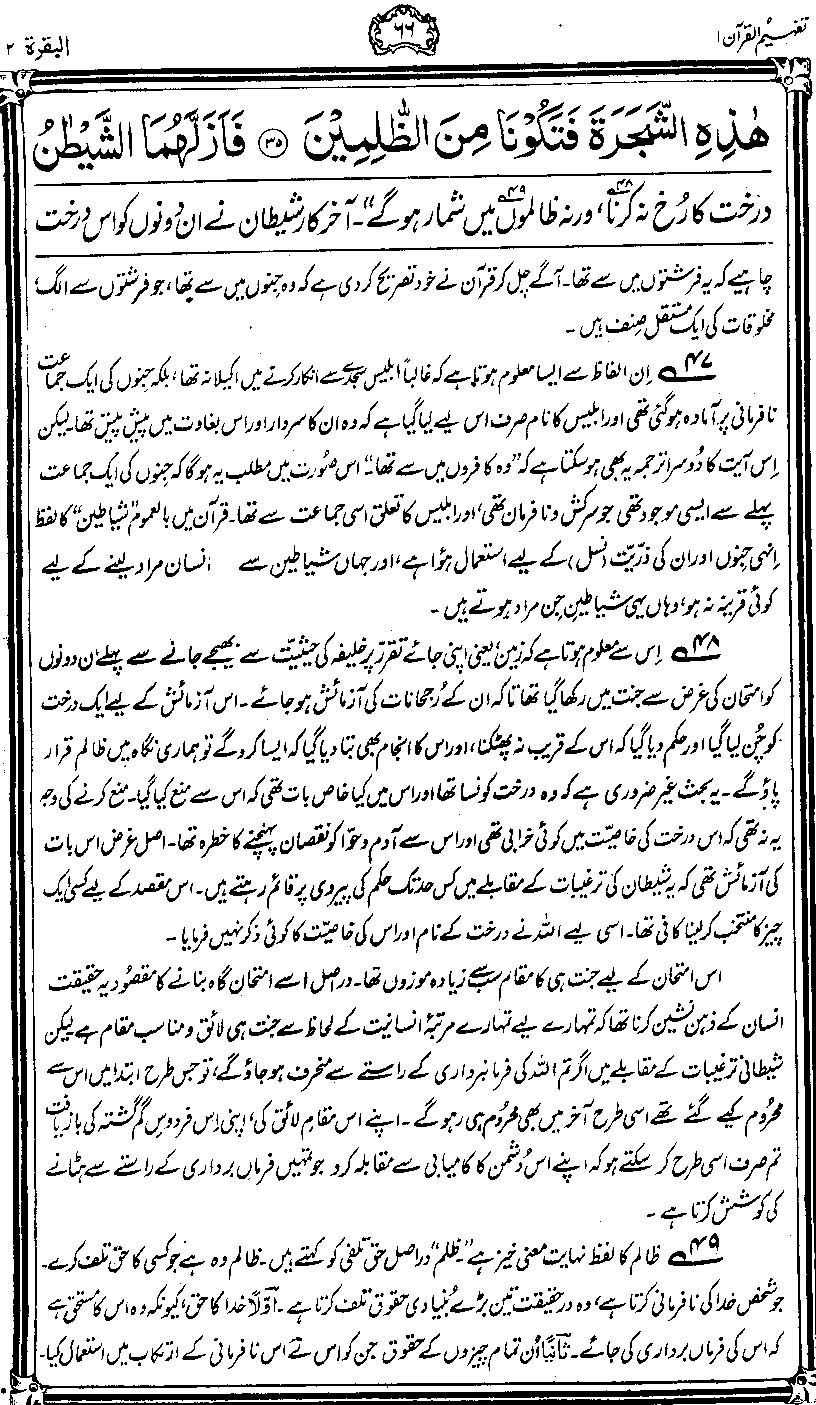 تفہیم القرآن ۱
۶۶
البقرۃ ۲
هٰذِهِ الشَّجَرَةَ فَتَكُوْنَا مِنَ الظّٰلِمِيْنَ ۝۳۵ فَاَزَلَّهُمَا الشَّيْطٰنُ
درخت کا رُخ نہ کرنا،۴۸ ورنہ ظالموں۴۹ میں شمار ہو گے“۔ آخر کار شیطان نے ان دونوں کو اس درخت
چاہیے کہ یہ فرشتوں میں سے تھا۔ آگے چل کر قرآن نے خود تصریح کر دی ہے کہ وہ جِنوں میں سے تھا، جو فرشتوں سے الگ،
مخلوقات کی ایک مستقل صِنف ہیں۔
۴۷ اِن الفاظ سے ایسا معلوم ہوتا ہے کہ غالباً ابلیس سجدے سے انکار کرنے میں اکیلا نہ تھا، بلکہ جنوں کی ایک جماعت
نافرمانی پر آمادہ ہو گئی تھی اور ابلیس کا نام صرف اس لیے لیا گیا ہے کہ وہ ان کا سردار اور اس بغاوت میں پیش پیش تھا۔ لیکن
اِس آیت کا دُوسرا ترجمہ یہ بھی ہو سکتا ہے کہ ”وہ کافروں میں سے تھا“۔ اس صُورت میں مطلب یہ ہو گا کہ جِنوں کی ایک جماعت
پہلے سے ایسی موجود تھی جو سرکش و نافرمان تھی، اور ابلیس کا تعلق اسی جماعت سے تھا۔ قرآن میں بالعموم ”شیاطین“ کا لفظ
اِنہی جِنوں اور ان کی ذُرِّیّت (نسل) کے لیے استعمال ہؤا ہے، اور جہاں شیاطین سے انسان مراد لینے کے لیے
کوئی قرینہ نہ ہو، وہاں یہی شیاطینِ جن مراد ہوتے ہیں۔
۴۸ اِس سے معلوم ہوتا ہے کہ زمین، یعنی اپنی جائے تقرّر پر خلیفہ کی حیثیّت سے بھیجے جانے سے پہلے اِن دونوں
کو امتحان کی غرض سے جنت میں رکھا گیا تھا تاکہ ان کے رُجحانات کی آزمائش ہو جائے۔ اس آزمائش کے لیے ایک درخت
کو چُن لیا گیا اور حکم دیا گیا کہ اس کے قریب نہ پھٹکنا، اور اس کا انجام بھی بتا دیا گیا کہ ایسا کرو گے تو ہماری نگاہ میں ظالم قرار
پاؤ گے۔ یہ بحث غیر ضروری ہے کہ وہ درخت کونسا تھا اور اس میں کیا خاص بات تھی کہ اس سے منع کیا گیا۔ منع کرنے کی وجہ
یہ نہ تھی کہ اس درخت کی خاصیّت میں کوئی خرابی تھی اور اس سے آدم و حوّا کو نقصان پہنچنے کا خطرہ تھا۔ اصل غرض اس بات
کی آزمائش تھی کہ یہ شیطان کی ترغیبات کے مقابلے میں کس حد تک حکم کی پیروی پر قائم رہتے ہیں۔ اس مقصد کے لیے کسی ایک
چیز کا منتخب کر لینا کافی تھا۔ اسی لیے اللہ نے درخت کے نام اور اس کی خاصیّت کا کوئی ذکر نہیں فرمایا۔
اس امتحان کے لیے جنت ہی کا مقام سب سے زیادہ موزوں تھا۔ دراصل اسے امتحان گاہ بنانے کا مقصُود یہ حقیقت
انسان کے ذہن نشین کرنا تھا کہ تمہارے لیے تمہارے مرتبۂ انسانیت کے لحاظ سے جنت ہی لائق و مناسب مقام ہے لیکن
شیطانی ترغیبات کے مقابلے میں اگر تم اللہ کی فرمانبرداری کے راستے سے منحرف ہو جاؤ گے، تو جس طرح ابتدا میں اس سے
محرُوم کیے گئے تھے اسی طرح آخر میں بھی محرُوم ہی رہو گے۔ اپنے اس مقامِ لائق کی، اپنی اِس فردوسِ گم گشتہ کی بازیافت
تم صرف اسی طرح کر سکتے ہو کہ اپنے اُس دُشمن کا کامیابی سے مقابلہ کرو جو تمہیں فرماں برداری کے راستے سے ہٹانے
کی کوشش کرتا ہے۔
۴۹ ظالم کا لفظ نہایت معنی خیز ہے۔ ”ظلم“ دراصل حق تلفی کو کہتے ہیں۔ ظالم وہ ہے جو کسی کا حق تلف کرے۔
جو شخص خدا کی نافرمانی کرتا ہے، وہ درحقیقت تین بڑے بُنیادی حقوق تلف کرتا ہے۔ اوّلاً خدا کا حق، کیونکہ وہ اس کا مستحق ہے
کہ اس کی فرماں برداری کی جائے۔ ثانیاً اُن تمام چیزوں کے حقوق جن کو اس نے اس نافرمانی کے ارتکاب میں استعمال کیا۔